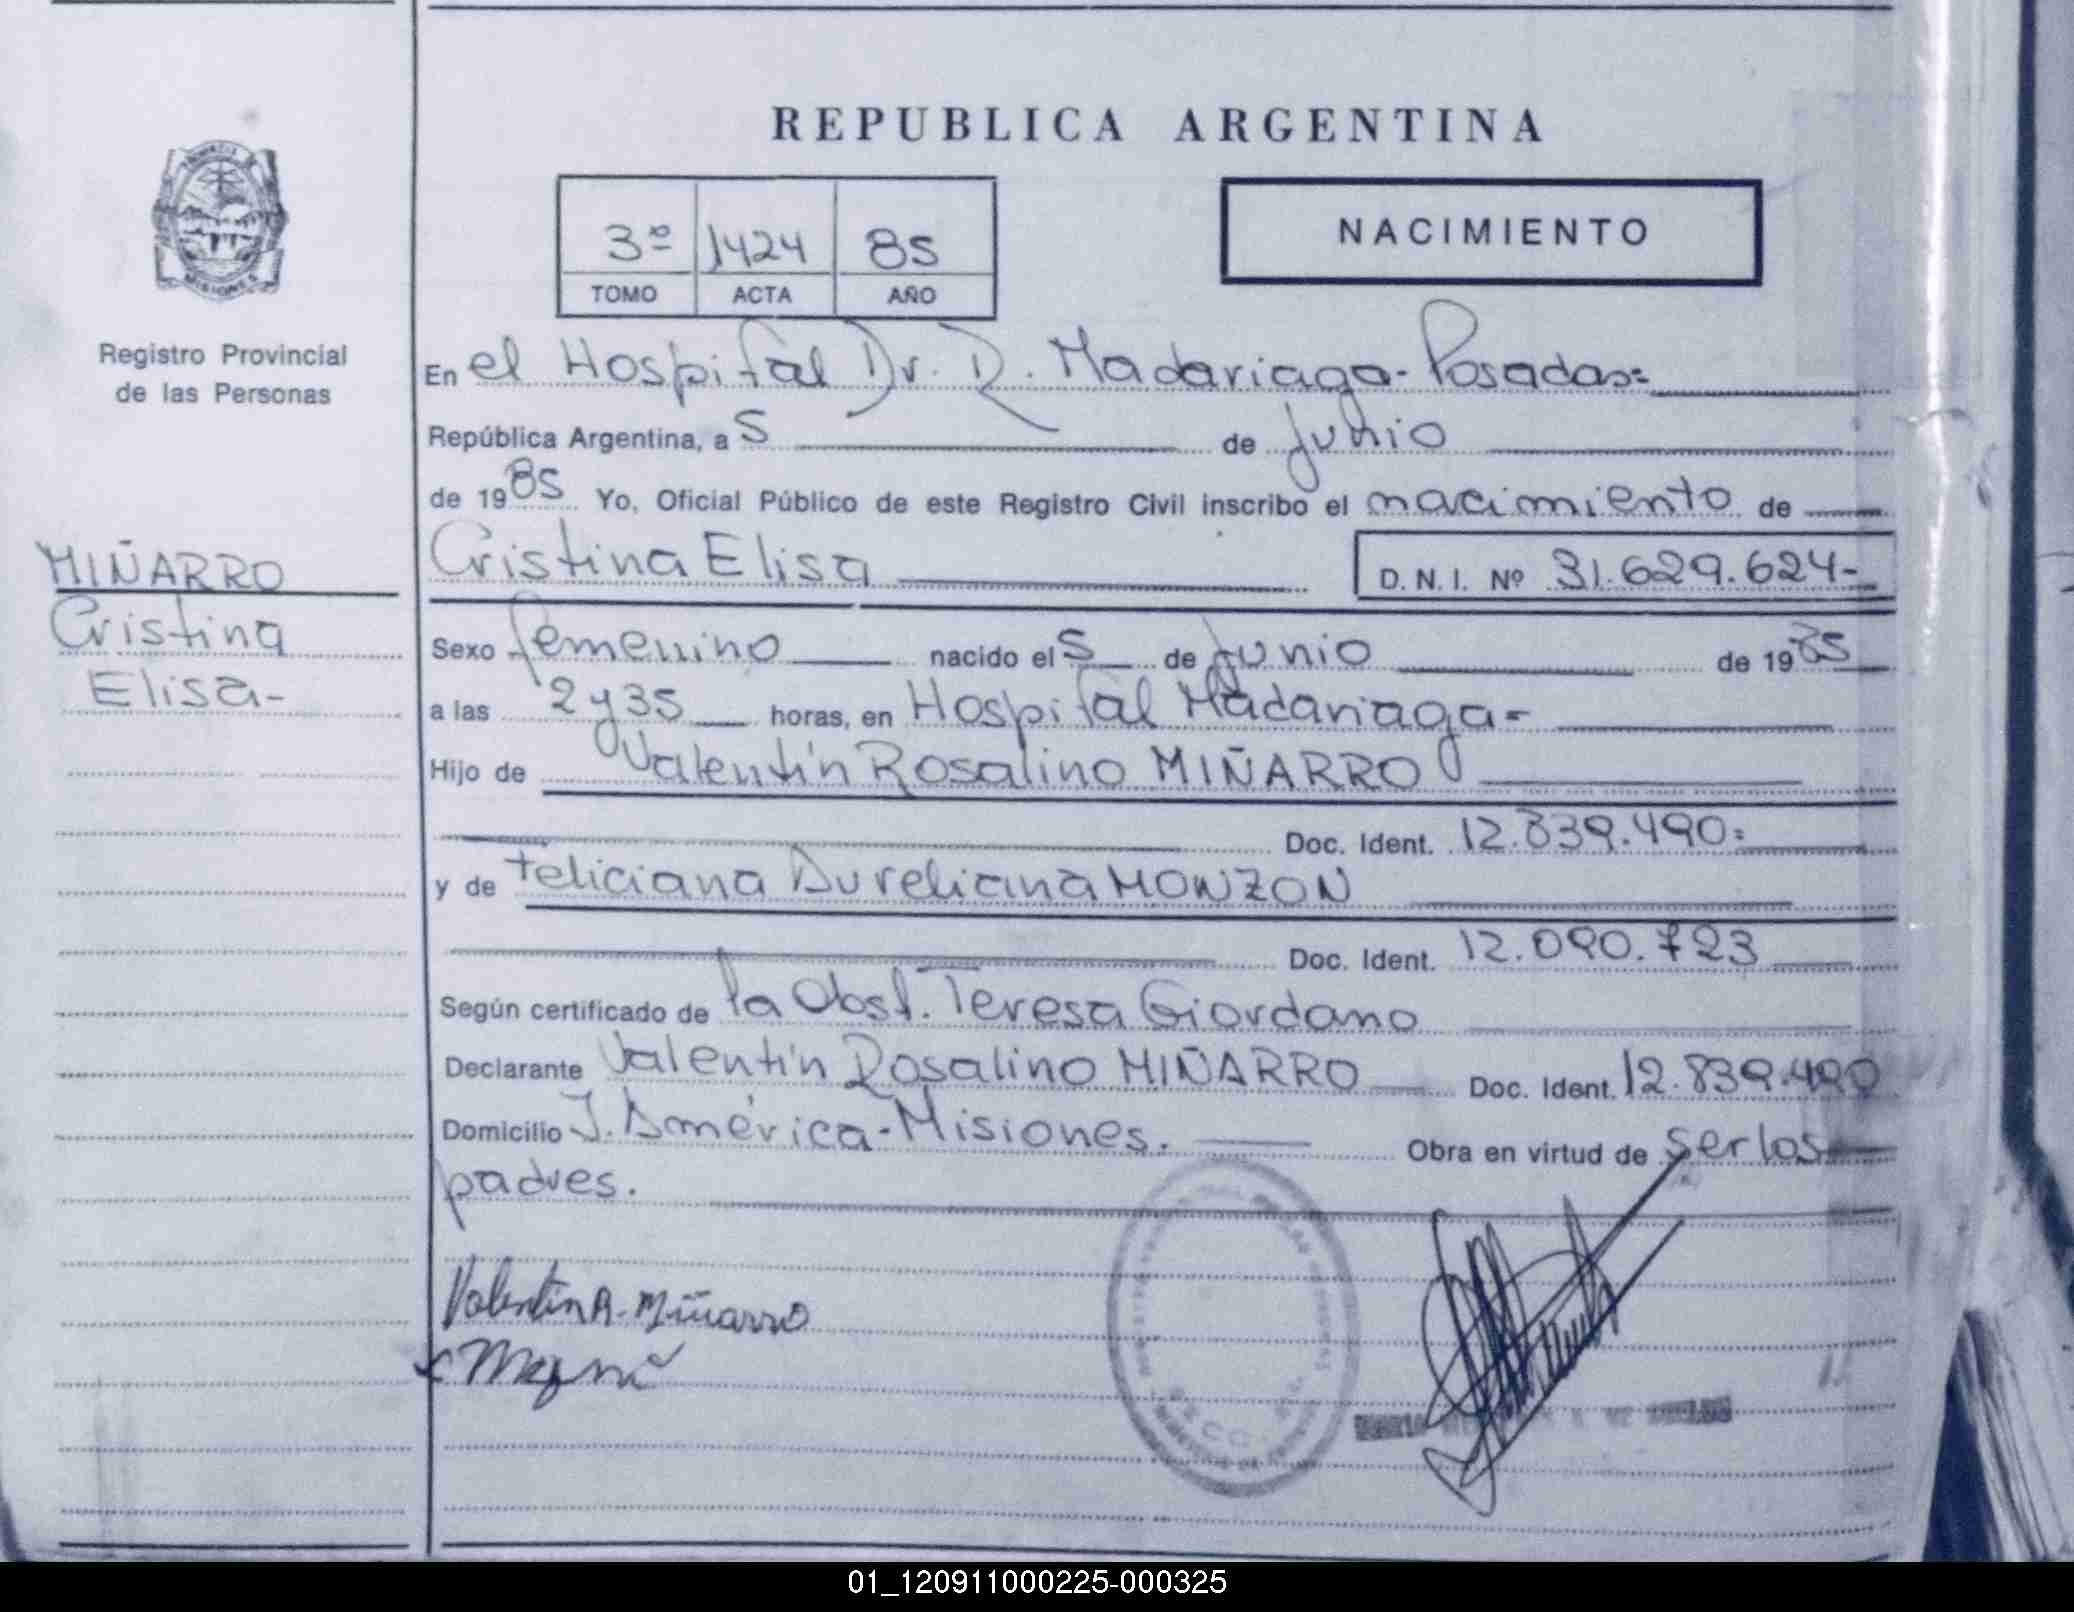 REPUBLICA ARGENTINA
3º 1424 85
TOMO ACTA AÑO
NACIMIENTO
Registro Provincial
de las Personas
MIÑARRO
Cristina
Elisa-
En el Hospital Dr. R. Madariaga-Posadas=
República Argentina, a 5 de Junio
de 1985 Yo, Oficial Público de este Registro Civil inscribo el nacimiento de
Cristina Elisa D. N. I. Nº 31.629.624-
Sexo femenino nacido el 5 de Junio de 1985
a las 2 y 35 horas, en Hospital Madariaga=
Hijo de Valentín Rosalino MIÑARRO
Doc. Ident. 12.839.490=
y de Feliciana Aureliana MONZON
Doc. Ident. 12.090.723
Según certificado de la Obst. Teresa Giordano
Declarante Valentín Rosalino MIÑARRO Doc. Ident. 12.839.490
Domicilio J. América-Misiones. Obra en virtud de ser los
padres.
Valentin R. Miñarro
01_120911000225-000325